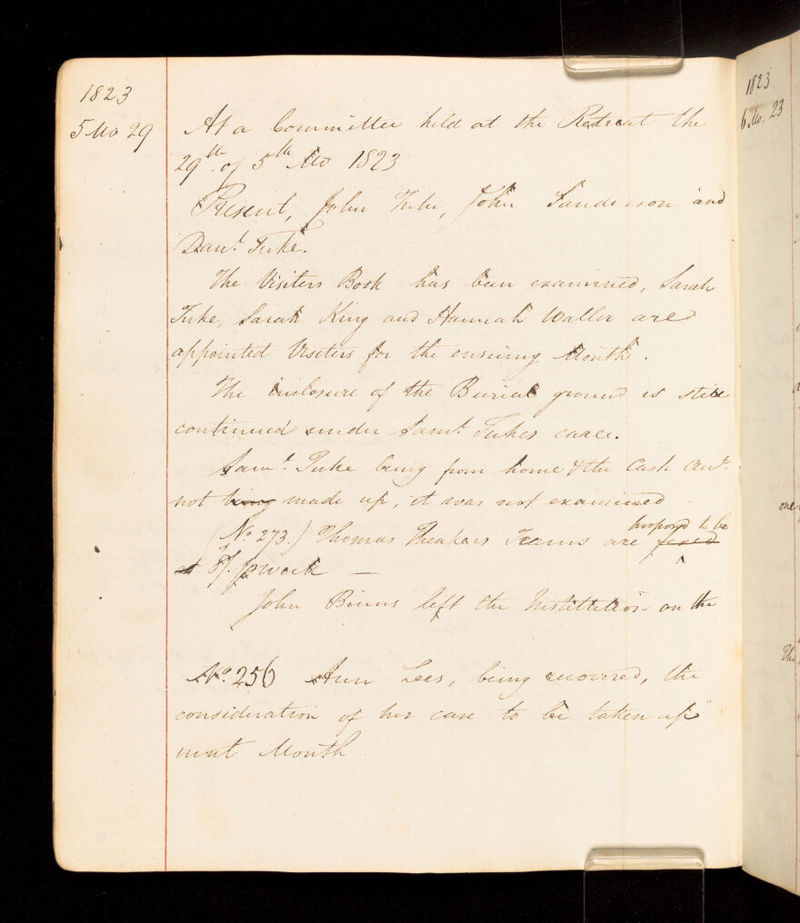 1823
5 Mo 29
At a Committee held at the Retreat the
29th. of 5th Mo 1823
Present, John Tuke, John Sanderson and
Danl. Tuke.
The Visiters Book has been examined, Sarah
Tuke, Sarah King and Hannah Waller are
appointed Visiters for the ensuing Month.
The Inclosure of the Burial ground is still
continued under Saml. Tukes care.
Saml. Tuke being from home & the Cash Act.
not being made up, it was not examined
proposed to be
(No 273.) Thomas Theakers Terms are fixed
at 8/. pr week —
John Binns left the Institution on the
No. 256 Ann Lees, being recovered, the
consideration of her case to be taken up
next Month
1823
6 Mo. 23
one
The